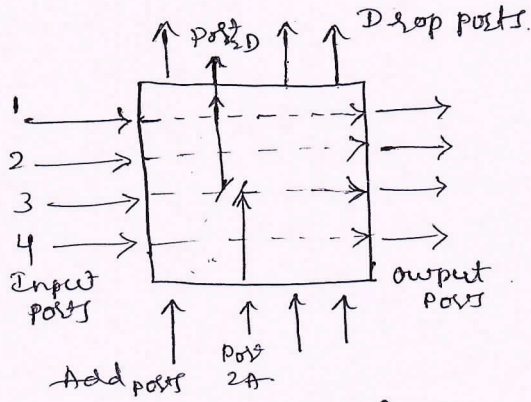 Port 2D
Drop ports.
1
2
3
4
Input
ports
output
ports
Add ports
Port
2A